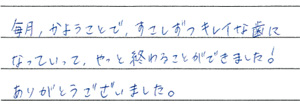 毎月、かようことで、すこしずつキレイな歯に
なっていって、やっと終わることができました!
ありがとうございました。